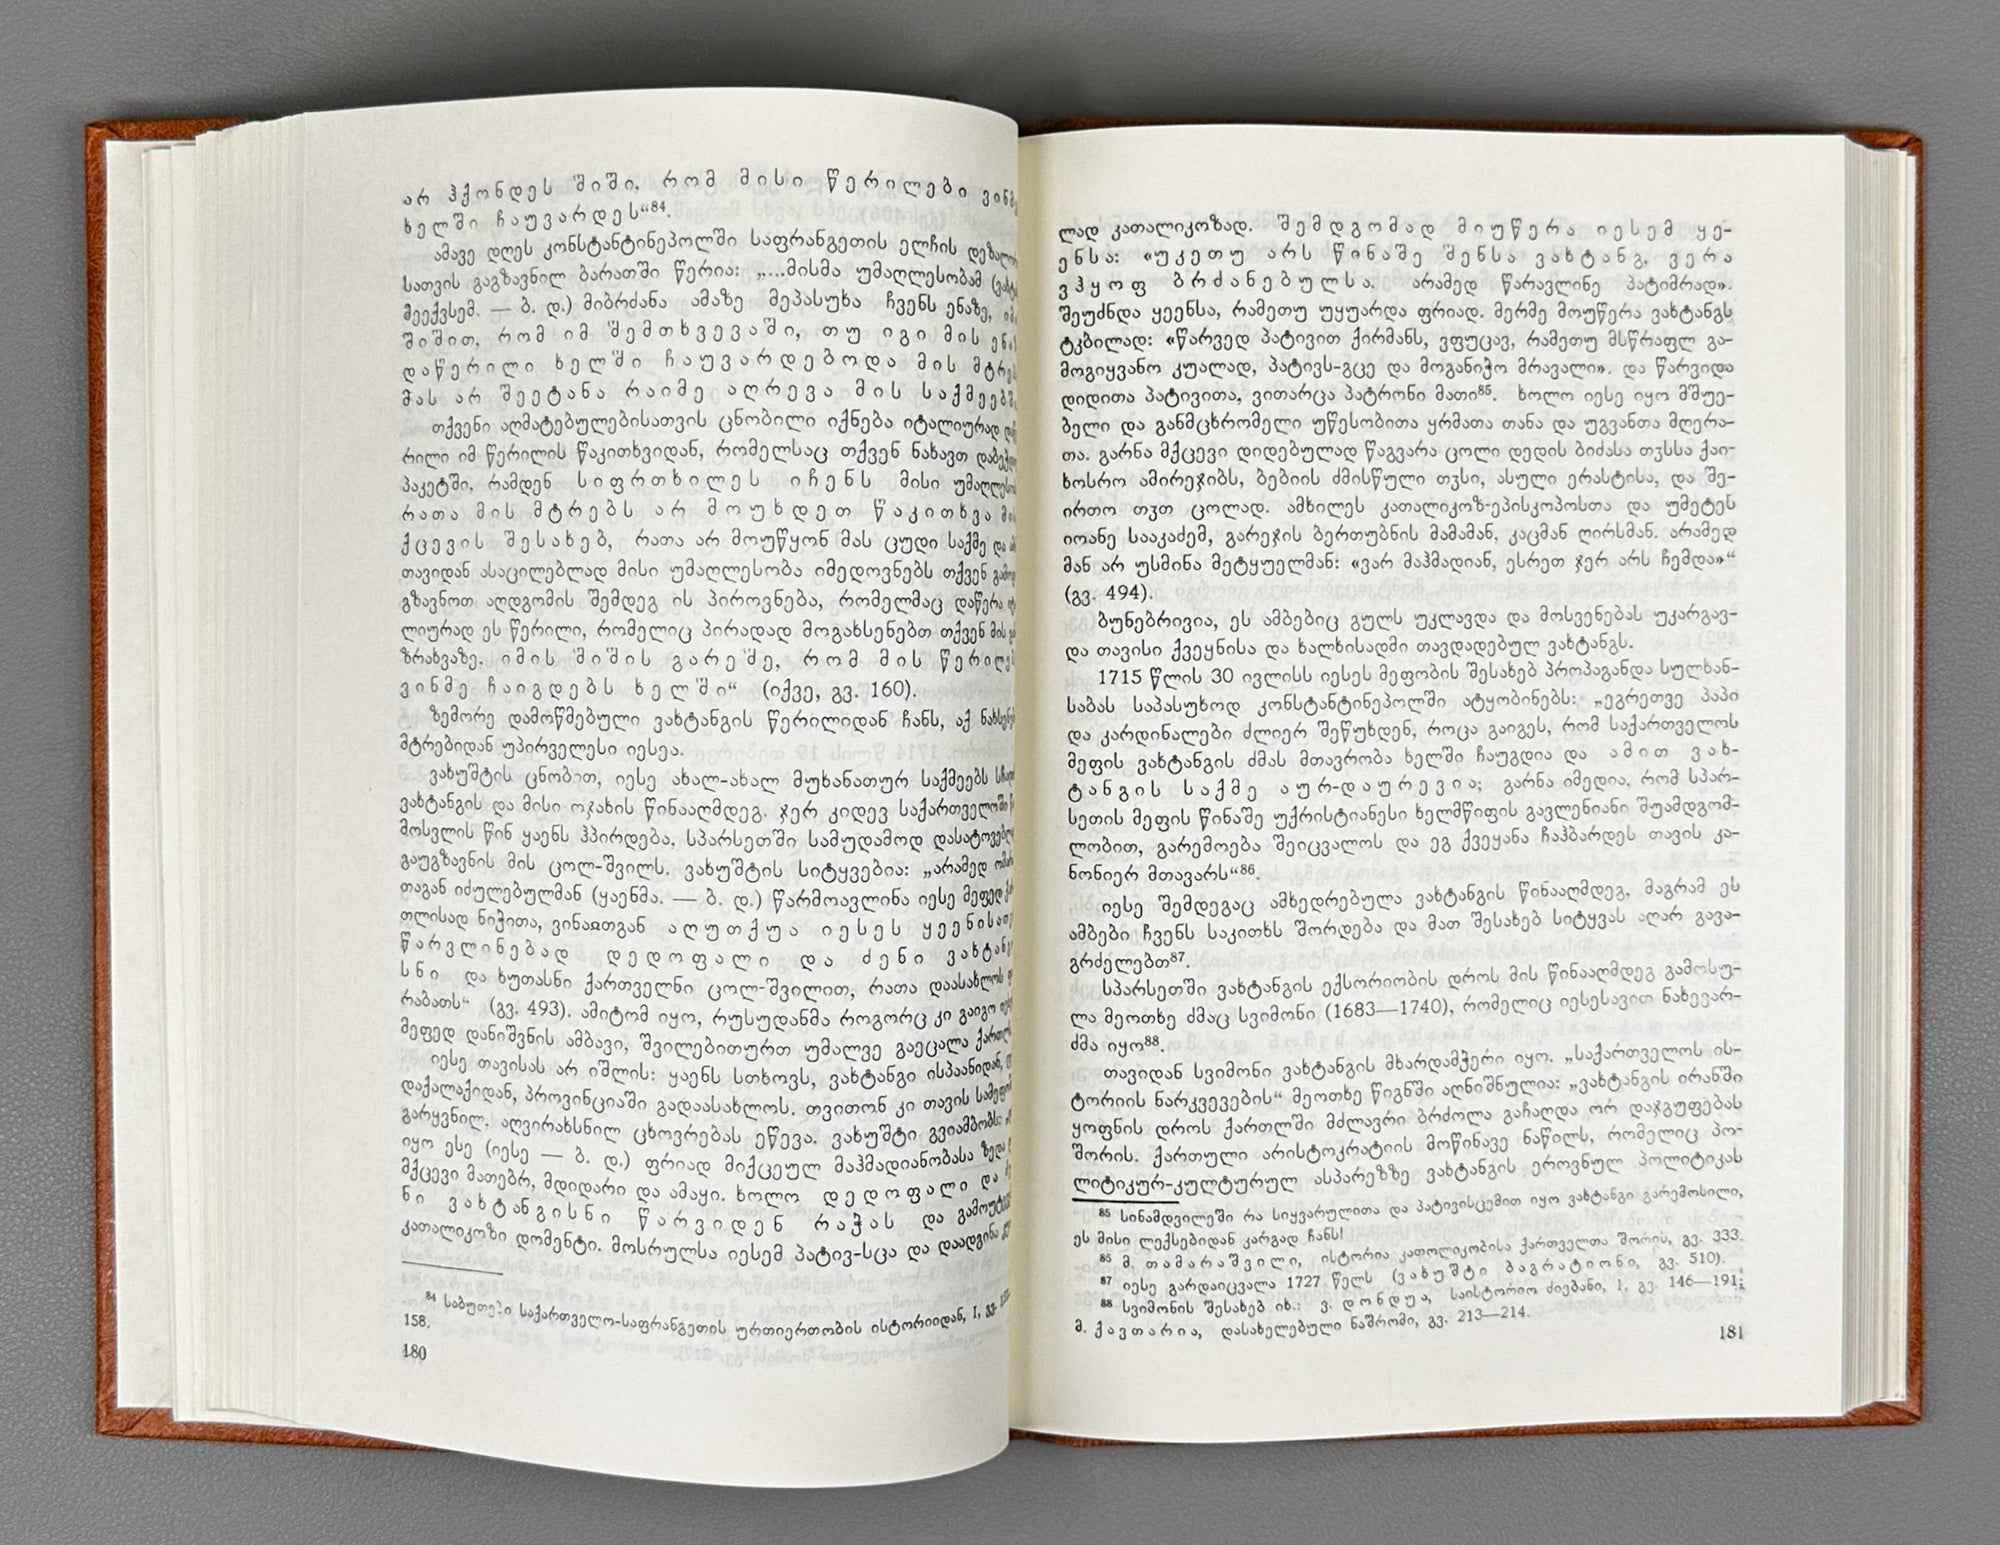 არ ჰქონდეს შიში, რომ მისი წერილები
ხელში ჩაუვარდეს“⁸⁴.
ამავე დღეს კონსტანტინეპოლში საფრანგეთის ელჩის
სათვის გაგზავნილ ბარათში წერია: „...მისმა უმაღლესობამ
მეექვსემ. — ბ. დ.) მიბრძანა ამაზე მეპასუხა ჩვენს ენაზე,
შიშით, რომ იმ შემთხვევაში, თუ იგი მის
დაწერილი ხელში ჩაუვარდებოდა მის
მას არ შეეტანა რაიმე აღრევა მის
თქვენი აღმატებულებისათვის ცნობილი იქნება იტალიურად
რილი იმ წერილის წაკითხვიდან, რომელსაც თქვენ ნახავთ
პაკეტში, რამდენ სიფრთხილეს იჩენს მისი
რათა მის მტრებს არ მოუხდეთ წაკითხვა
ქცევის შესახებ, რათა არ მოუწყონ მას ცუდი საქმე და
თავიდან ასაცილებლად მისი უმაღლესობა იმედოვნებს თქვენ
გზავნოთ აღდგომის შემდეგ ის პიროვნება, რომელმაც დაწერა
ლიურად ეს წერილი, რომელიც პირადად მოგახსენებთ თქვენ მის
ზრახვაზე, იმის შიშის გარეშე, რომ მის
ვინმე ჩაიგდებს ხელში“ (იქვე, გვ. 160).
ზემორე დამოწმებული ვახტანგის წერილიდან ჩანს, აქ
მტრებიდან უპირველესი იესეა.
ვახუშტის ცნობით, იესე ახალ-ახალ მუხანათურ საქმეებს
ვახტანგის და მისი ოჯახის წინააღმდეგ. ჯერ კიდევ საქართველოში
მოსვლის წინ ყაენს ჰპირდება, სპარსეთში სამუდამოდ
გაუგზავნის მის ცოლ-შვილს. ვახუშტის სიტყვებია: „არამედ
თაგან იძულებულმან (ყაენმა. — ბ. დ.) წარმოავლინა იესე მეფედ
თლისად ნიჭითა, ვინაჲთგან აღუთქუა იესეს
წარვლინებად დედოფალი და ძენი
სნი და ხუთასნი ქართველნი ცოლ-შვილით, რათა დაასახლოს
რაბათს“ (გვ. 493). ამიტომ იყო, რუსუდანმა როგორც კი გაიგო
მეფედ დანიშვნის ამბავი, შვილებითურთ უმალვე გაეცალა
იესე თავისას არ იშლის: ყაენს სთხოვს, ვახტანგი ისპაანიდან,
დაქალაქიდან, პროვინციაში გადაასახლოს. თვითონ კი თავის
გარყვნილ, აღვირახსნილ ცხოვრებას ეწევა. ვახუშტი გვიამბობს:
იყო ესე (იესე — ბ. დ.) ფრიად მიქცეულ მაჰმადიანობასა ზედა
მქცევი მათებრ, მდიდარი და ამაყი. ხოლო დედოფალი და
ნი ვახტანგისნი წარვიდენ რაჭას და
კათალიკოზი დომენტი. მოსრულსა იესემ პატივ-სცა და დაადგინა
⁸⁴ საბუთები საქართველო-საფრანგეთის ურთიერთობის ისტორიიდან, I,
158.
180
ლად კათალიკოზად. შემდგომად მიუწერა იესემ ყე-
ენსა: «უკეთუ არს წინაშე შენსა ვახტანგ, ვერა
ვჰყოფ ბრძანებულსა, არამედ წარავლინე პატიმრად».
შეუძნდა ყეენსა, რამეთუ უყუარდა ფრიად. მერმე მოუწერა ვახტანგს
ტკბილად: «წარვედ პატივით ქირმანს, ვფუცავ, რამეთუ მსწრაფლ გა-
მოგიყვანო კუალად, პატივს-გცე და მოგანიჭო მრავალი». და წარვიდა
დიდითა პატივითა, ვითარცა პატრონი მათი⁸⁵. ხოლო იესე იყო მშუე-
ბელი და განმცხრომელი უწესობითა ყრმათა თანა და უგვანთა მღერა-
თა. გარნა მქცევი დიდებულად წაგვარა ცოლი დედის ბიძასა თჳსსა ქაი-
ხოსრო ამირეჯიბს, ბებიის ძმისწული თჳსი, ასული ერასტისა, და შე-
ირთო თჳთ ცოლად. ამხილეს კათალიკოზ-ეპისკოპოსთა და უმეტეს
იოანე სააკაძემ, გარეჯის ბერთუბნის მამამან, კაცმან ღირსმან. არამედ
მან არ უსმინა მეტყუელმან: «ვარ მაჰმადიან, ესრეთ ჯერ არს ჩემდა»“
(გვ. 494).
ბუნებრივია, ეს ამბებიც გულს უკლავდა და მოსვენებას უკარგავ-
და თავისი ქვეყნისა და ხალხისადმი თავდადებულ ვახტანგს.
1715 წლის 30 ივლისს იესეს მეფობის შესახებ პროპაგანდა სულხან-
საბას საპასუხოდ კონსტანტინეპოლში ატყობინებს: „ეგრეთვე პაპი
და კარდინალები ძლიერ შეწუხდენ, როცა გაიგეს, რომ საქართველოს
მეფის ვახტანგის ძმას მთავრობა ხელში ჩაუგდია და ამით ვახ-
ტანგის საქმე აურ-დაურევია; გარნა იმედია, რომ სპარ-
სეთის მეფის წინაშე უქრისტიანესი ხელმწიფის გავლენიანი შუამდგომ-
ლობით, გარემოება შეიცვალოს და ეგ ქვეყანა ჩაჰბარდეს თავის კა-
ნონიერ მთავარს“⁸⁶.
იესე შემდეგაც ამხედრებულა ვახტანგის წინააღმდეგ, მაგრამ ეს
ამბები ჩვენს საკითხს შორდება და მათ შესახებ სიტყვას აღარ გავა-
გრძელებთ⁸⁷.
სპარსეთში ვახტანგის ექსორიობის დროს მის წინააღმდეგ გამოსუ-
ლა მეოთხე ძმაც სვიმონი (1683—1740), რომელიც იესესავით ნახევარ-
ძმა იყო⁸⁸.
თავიდან სვიმონი ვახტანგის მხარდამჭერი იყო. „საქართველოს ის-
ტორიის ნარკვევების“ მეოთხე წიგნში აღნიშნულია: „ვახტანგის ირანში
ყოფნის დროს ქართლში მძლავრი ბრძოლა გაჩაღდა ორ დაჯგუფებას
შორის. ქართული არისტოკრატიის მოწინავე ნაწილს, რომელიც პო-
ლიტიკურ-კულტურულ ასპარეზზე ვახტანგის ეროვნულ პოლიტიკას
⁸⁵ სინამდვილეში რა სიყვარულითა და პატივისცემით იყო ვახტანგი გარემოსილი,
ეს მისი ლექსებიდან კარგად ჩანს!
⁸⁶ მ. თამარაშვილი, ისტორია კათოლიკობისა ქართველთა შორის, გვ. 333.
⁸⁷ იესე გარდაიცვალა 1727 წელს (ვახუშტი ბაგრატიონი, გვ. 510).
⁸⁸ სვიმონის შესახებ იხ.: ვ. დონდუა, საისტორიო ძიებანი, I, გვ. 146—191;
მ. ქავთარია, დასახელებული ნაშრომი, გვ. 213—214.
181